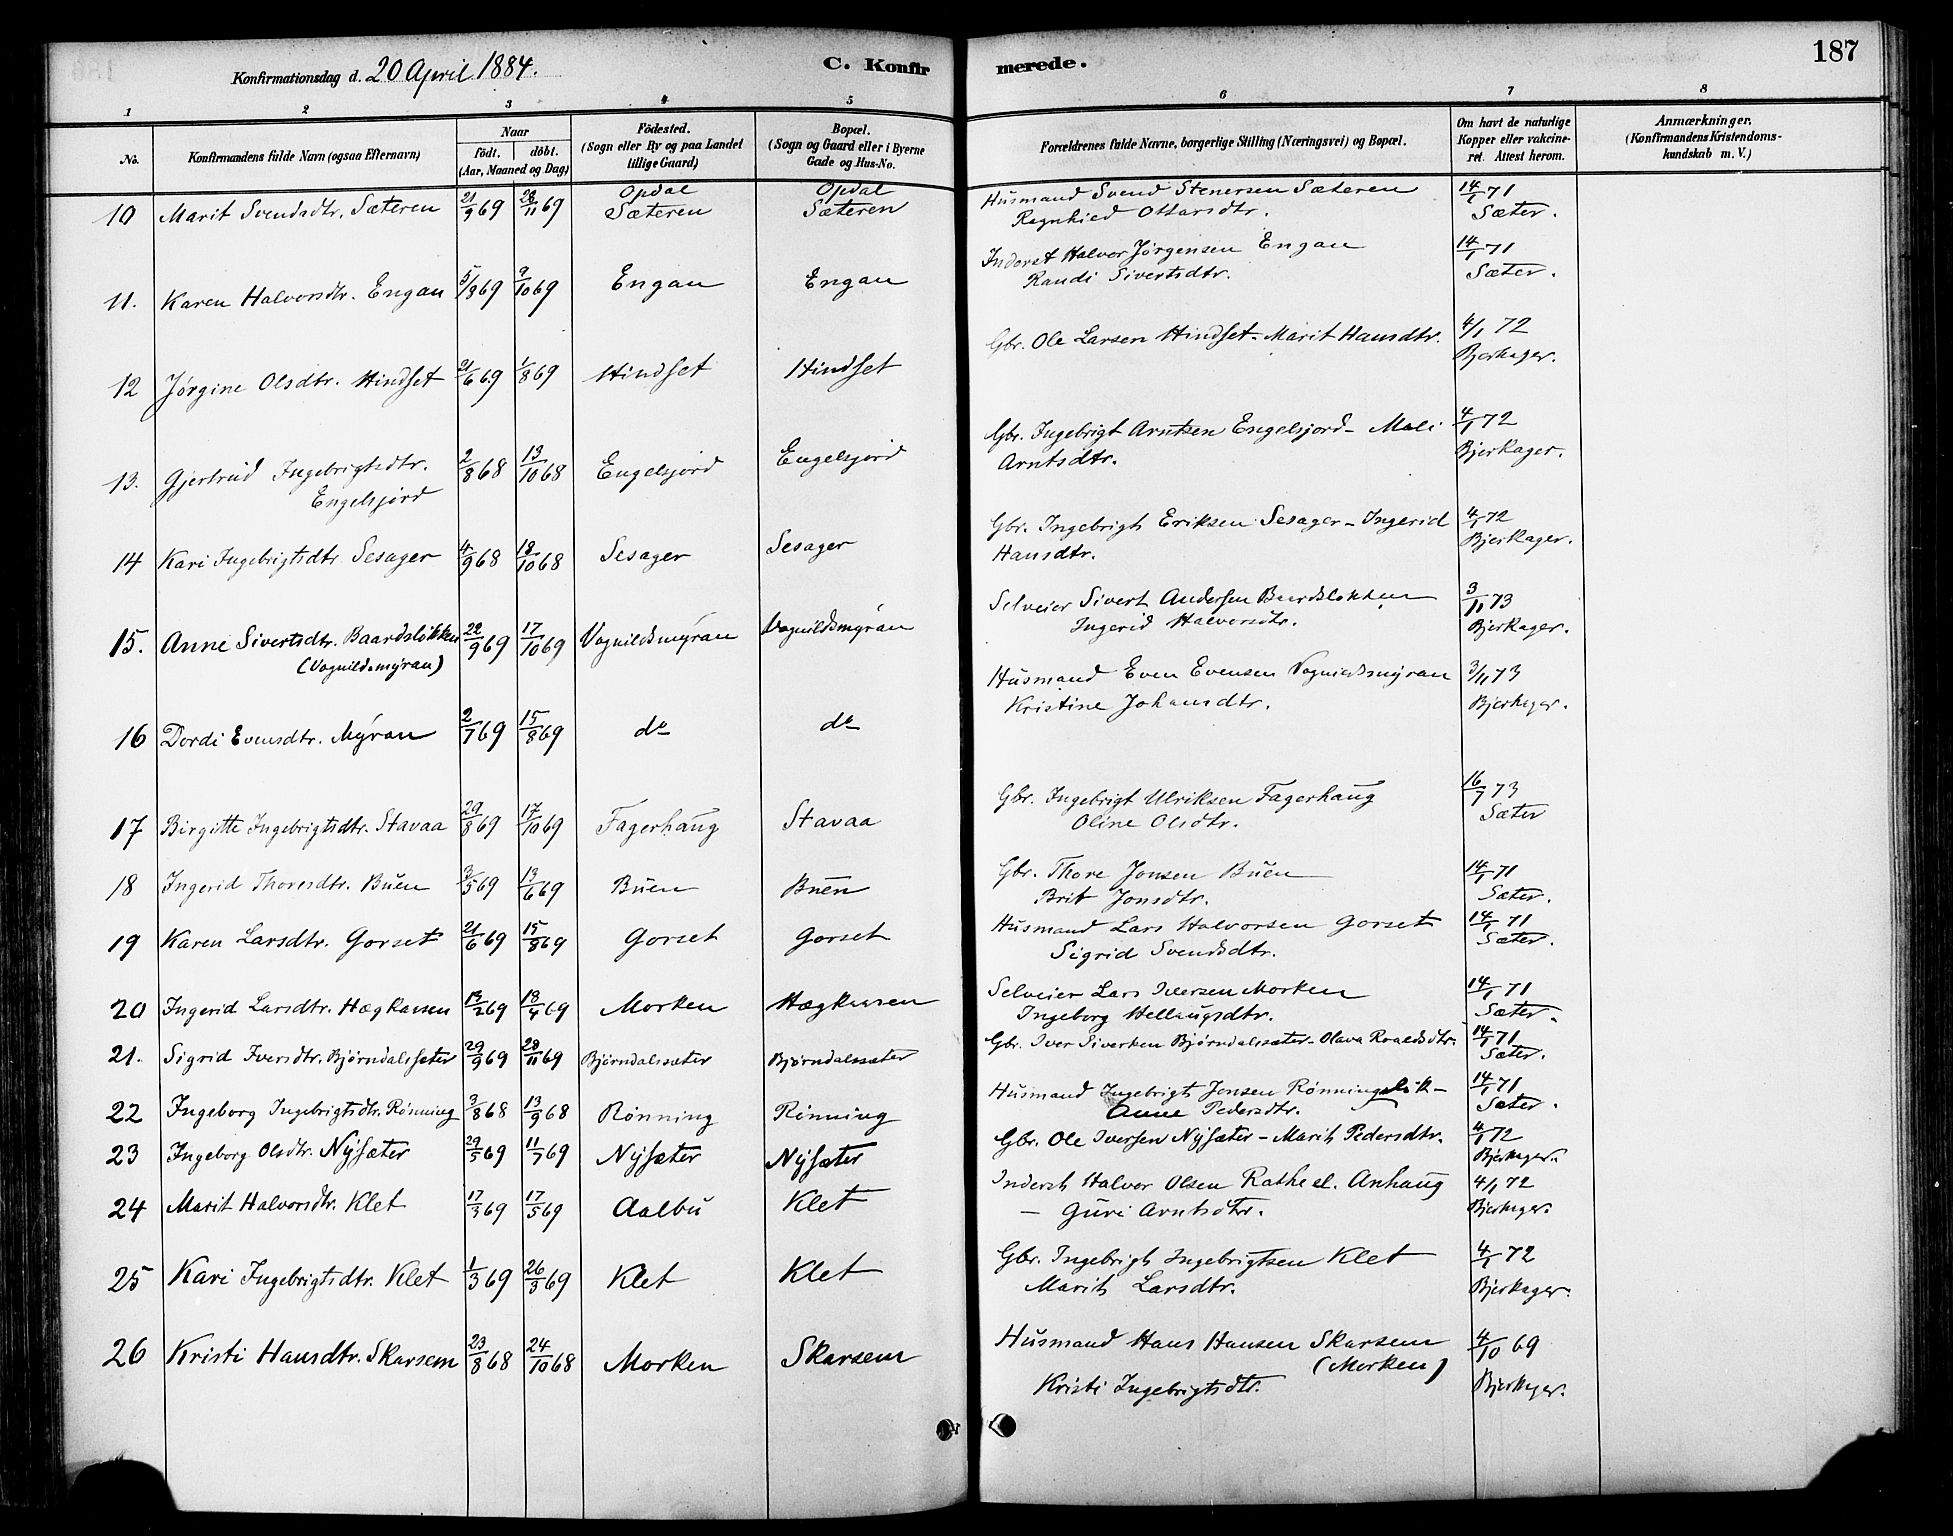 Konfirmationsdag d. 20 April 1884.
C. Konfir
merede.
187
1 2 3 4 5 6 7 8
No.
Konfirmandens fulde Navn (ogsaa Efternavn)
Naar
födt. döbt.
(Aar, Maaned og Dag)
Födested.
(Sogn eller By og paa Landet
tillige Gaard)
Bopæl.
(Sogn og Gaard eller i Byerne
Gade og Hus-No.
Forældrenes fulde Navne, borgerlige Stilling (Næringsvei) og Bopæl.
Om havt de naturlige
Kopper eller vakcine-
ret. Attest herom.
Anmærkninger.
(Konfirmandens Kristendoms-
kundskab m. V.)
10 Marit Svendsdtr. Sæteren 21/9 69 28/11 69 Opdal Sæteren Opdal Sæteren Husmand Svend Stenersen Sæteren 14/1 71
Ragnhied Ottarsdtr. Sæter.
11. Karen Halvorsdtr. Engan 5/8 69 9/10 69 Engan Engan Inderst Halvor Jørgensen Engan 14/1 71
Randi Sivertsdtr. Sæter.
12 Jørgine Olsdtr. Hindset 21/6 69 1/8 69 Hindset Hindset Gbr. Ole Larsen Hindset - Marit Hansdtr. 4/1 72
Bjerkager.
13. Gjertrud Ingebrigtsdtr. 2/8 68 13/10 68 Engelsjord Engelsjord Gbr. Ingebrigt Arntsen Engelsjord - Mali 4/1 72
Engelsjord Arntsdtr. Bjerkager.
14 Kari Ingebrigtsdtr Sesager 4/9 68 18/10 68 Sesager Sesager Gbr. Ingebrigt Eriksen Sesager - Ingerid 4/1 72
Hansdtr. Bjerkager.
15. Anne Sivertsdtr. Baardsløkken 22/9 69 17/10 69 Vognildsmyran Vognildsmyran Selveier Sivert Andersen Baardsløkken 3/11 73
(Vognildsmyran) Ingerid Halvorsdtr. Bjerkager.
16 Dordi Evensdtr. Myran 2/7 69 15/8 69 do do Husmand Even Evensen Vognildsmyran 3/11 73
Kristine Johansdtr. Bjerkager.
17 Birgitte Ingebrigtsdtr. Stavaa 29/8 69 17/10 69 Fagerhaug Stavaa Gbr. Ingebrigt Ulriksen Fagerhaug 16/7 73
Oline Olsdtr. Sæter
18 Ingerid Thoresdtr. Buen 3/5 69 13/6 69 Buen Buen Gbr. Thore Jonsen Buen 14/1 71
Brit Jonsdtr. Sæter.
19 Karen Larsdtr. Gorset 21/6 69 15/8 69 Gorset Gorset Husmand Lars Halvorsen Gorset 14/1 71
Sigrid Svendsdtr. Sæter.
20 Ingerid Larsdtr. Hægkausen 19/2 69 18/4 69 Morken Hægkausen Selveier Lars Iversen Morken 14/1 71
Ingeborg Hellaugsdtr. Sæter.
21. Sigrid Iversdtr. Bjørndalssæter 29/9 69 28/11 69 Bjørndalssæter Bjørndalssæter Gbr. Iver Siverken Bjørndalssæter - Olava Roaldsdtr. 14/1 71
Sæter.
22 Ingeborg Ingebrigtsdtr. Rønning 3/8 68 13/9 68 Rønning Rønning Husmand Ingebrigt Jonsen Rønningsløk - 14/1 71
Anne Pedersdtr. Sæter.
23 Ingeborg Olsdtr. Nysæter 29/5 69 11/7 69 Nysæter Nysæter Gbr. Ole Iversen Nysæter - Marit Pedersdtr. 4/1 72
Bjerkager.
24 Marit Halvorsdtr. Klet 17/3 69 17/5 69 Aalbu Klet Inderst Halvor Olsen Rathe el. Anhaug 4/1 72
- Guri Arntsdtr. Bjerkager.
25 Kari Ingebrigtsdtr. Klet 1/3 69 26/3 69 Klet Klet Gbr. Ingebrigt Ingebrigtsen Klet 4/1 72
Marit Larsdtr. Bjerkager.
26 Kristi Hansdtr. Skarsem 23/8 68 24/10 68 Morken Skarsem Husmand Hans Hansen Skarsem 4/10 69
(Morken)
Kristi Ingebrigtsdtr. Bjerkager.